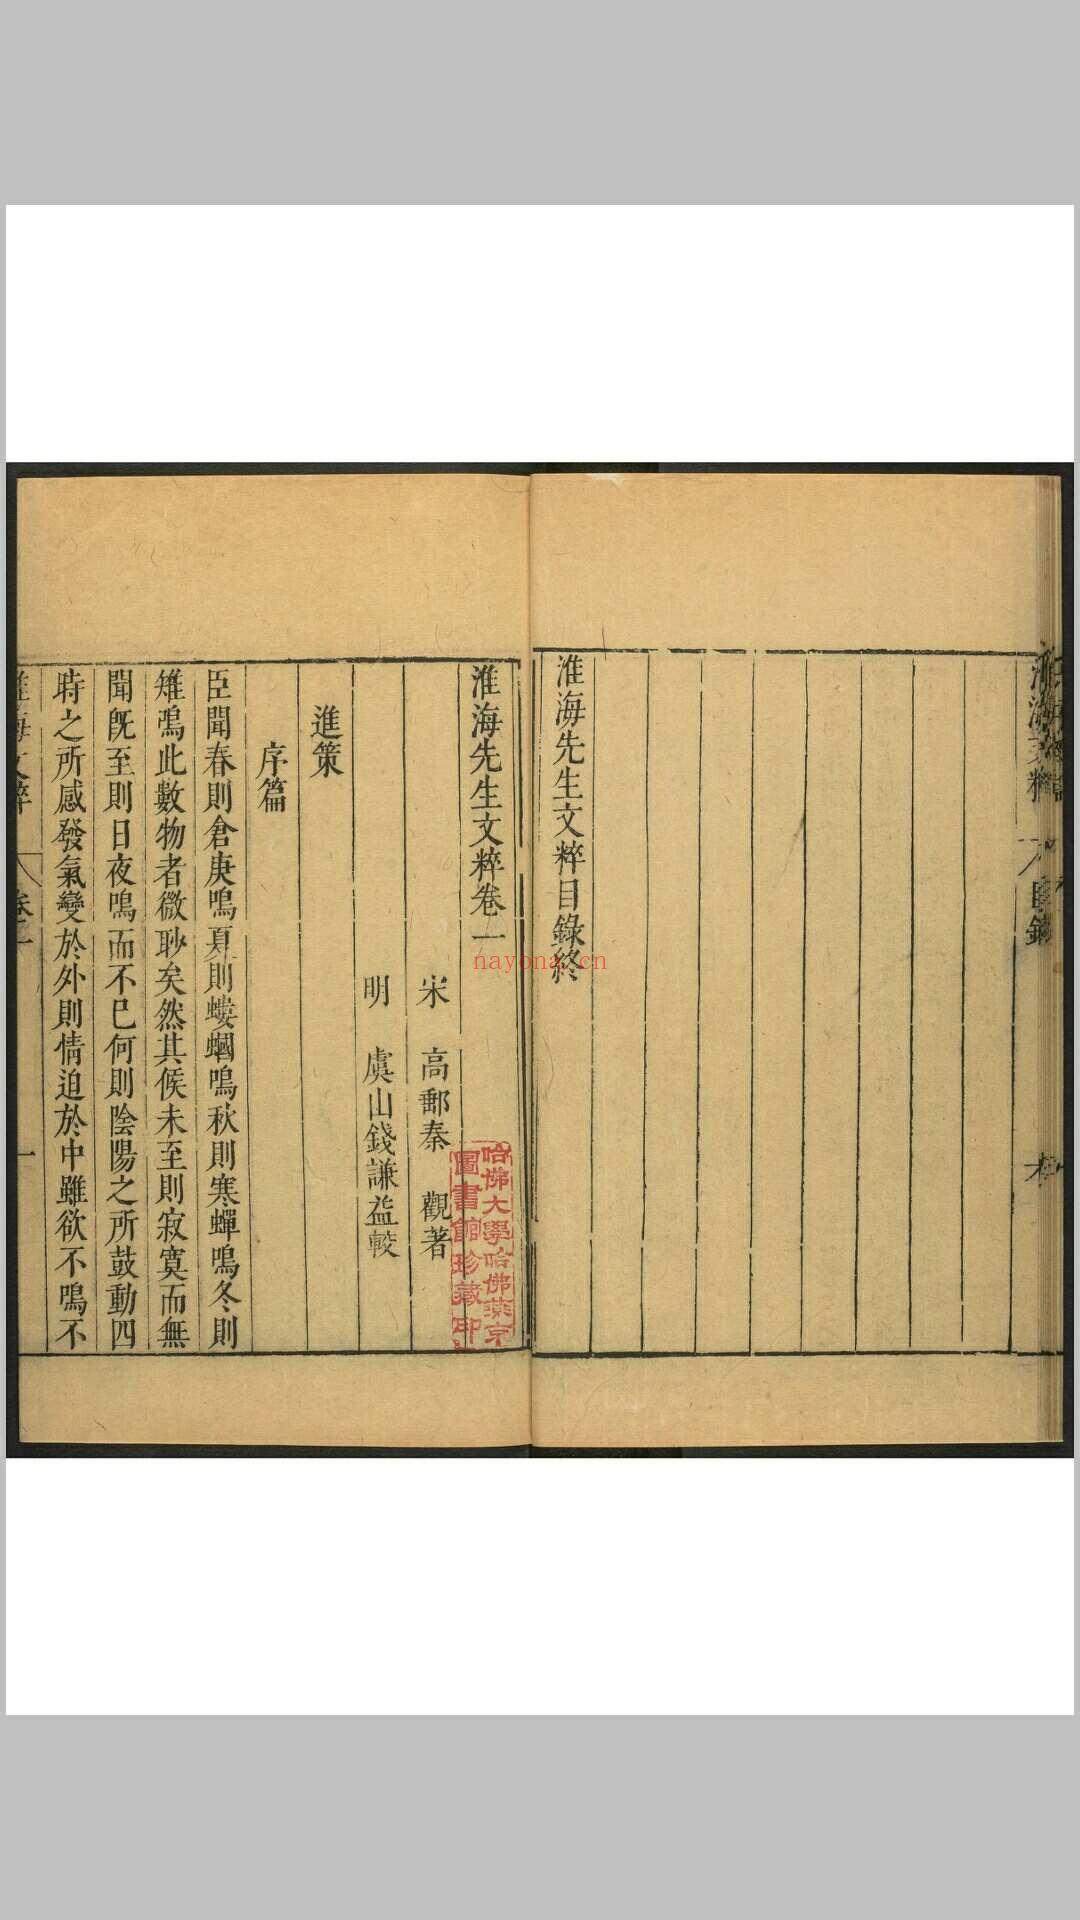 淮海先生文粹目錄終
淮海先生文粹卷一
宋　高郵秦　觀著
明　虞山錢謙益較
進策
序篇
臣聞春則倉庚鳴夏則螻蟈鳴秋則寒蟬鳴冬則
雉鳴此數物者微眇矣然其候未至則寂寞而無
聞旣至則日夜鳴而不已何則陰陽之所鼓動四
時之所感發氣變於外則情迫於中雖欲不鳴不
淮海文粹　卷一　一
哈佛大學哈佛燕京
圖書館珍藏印
nayona.cn